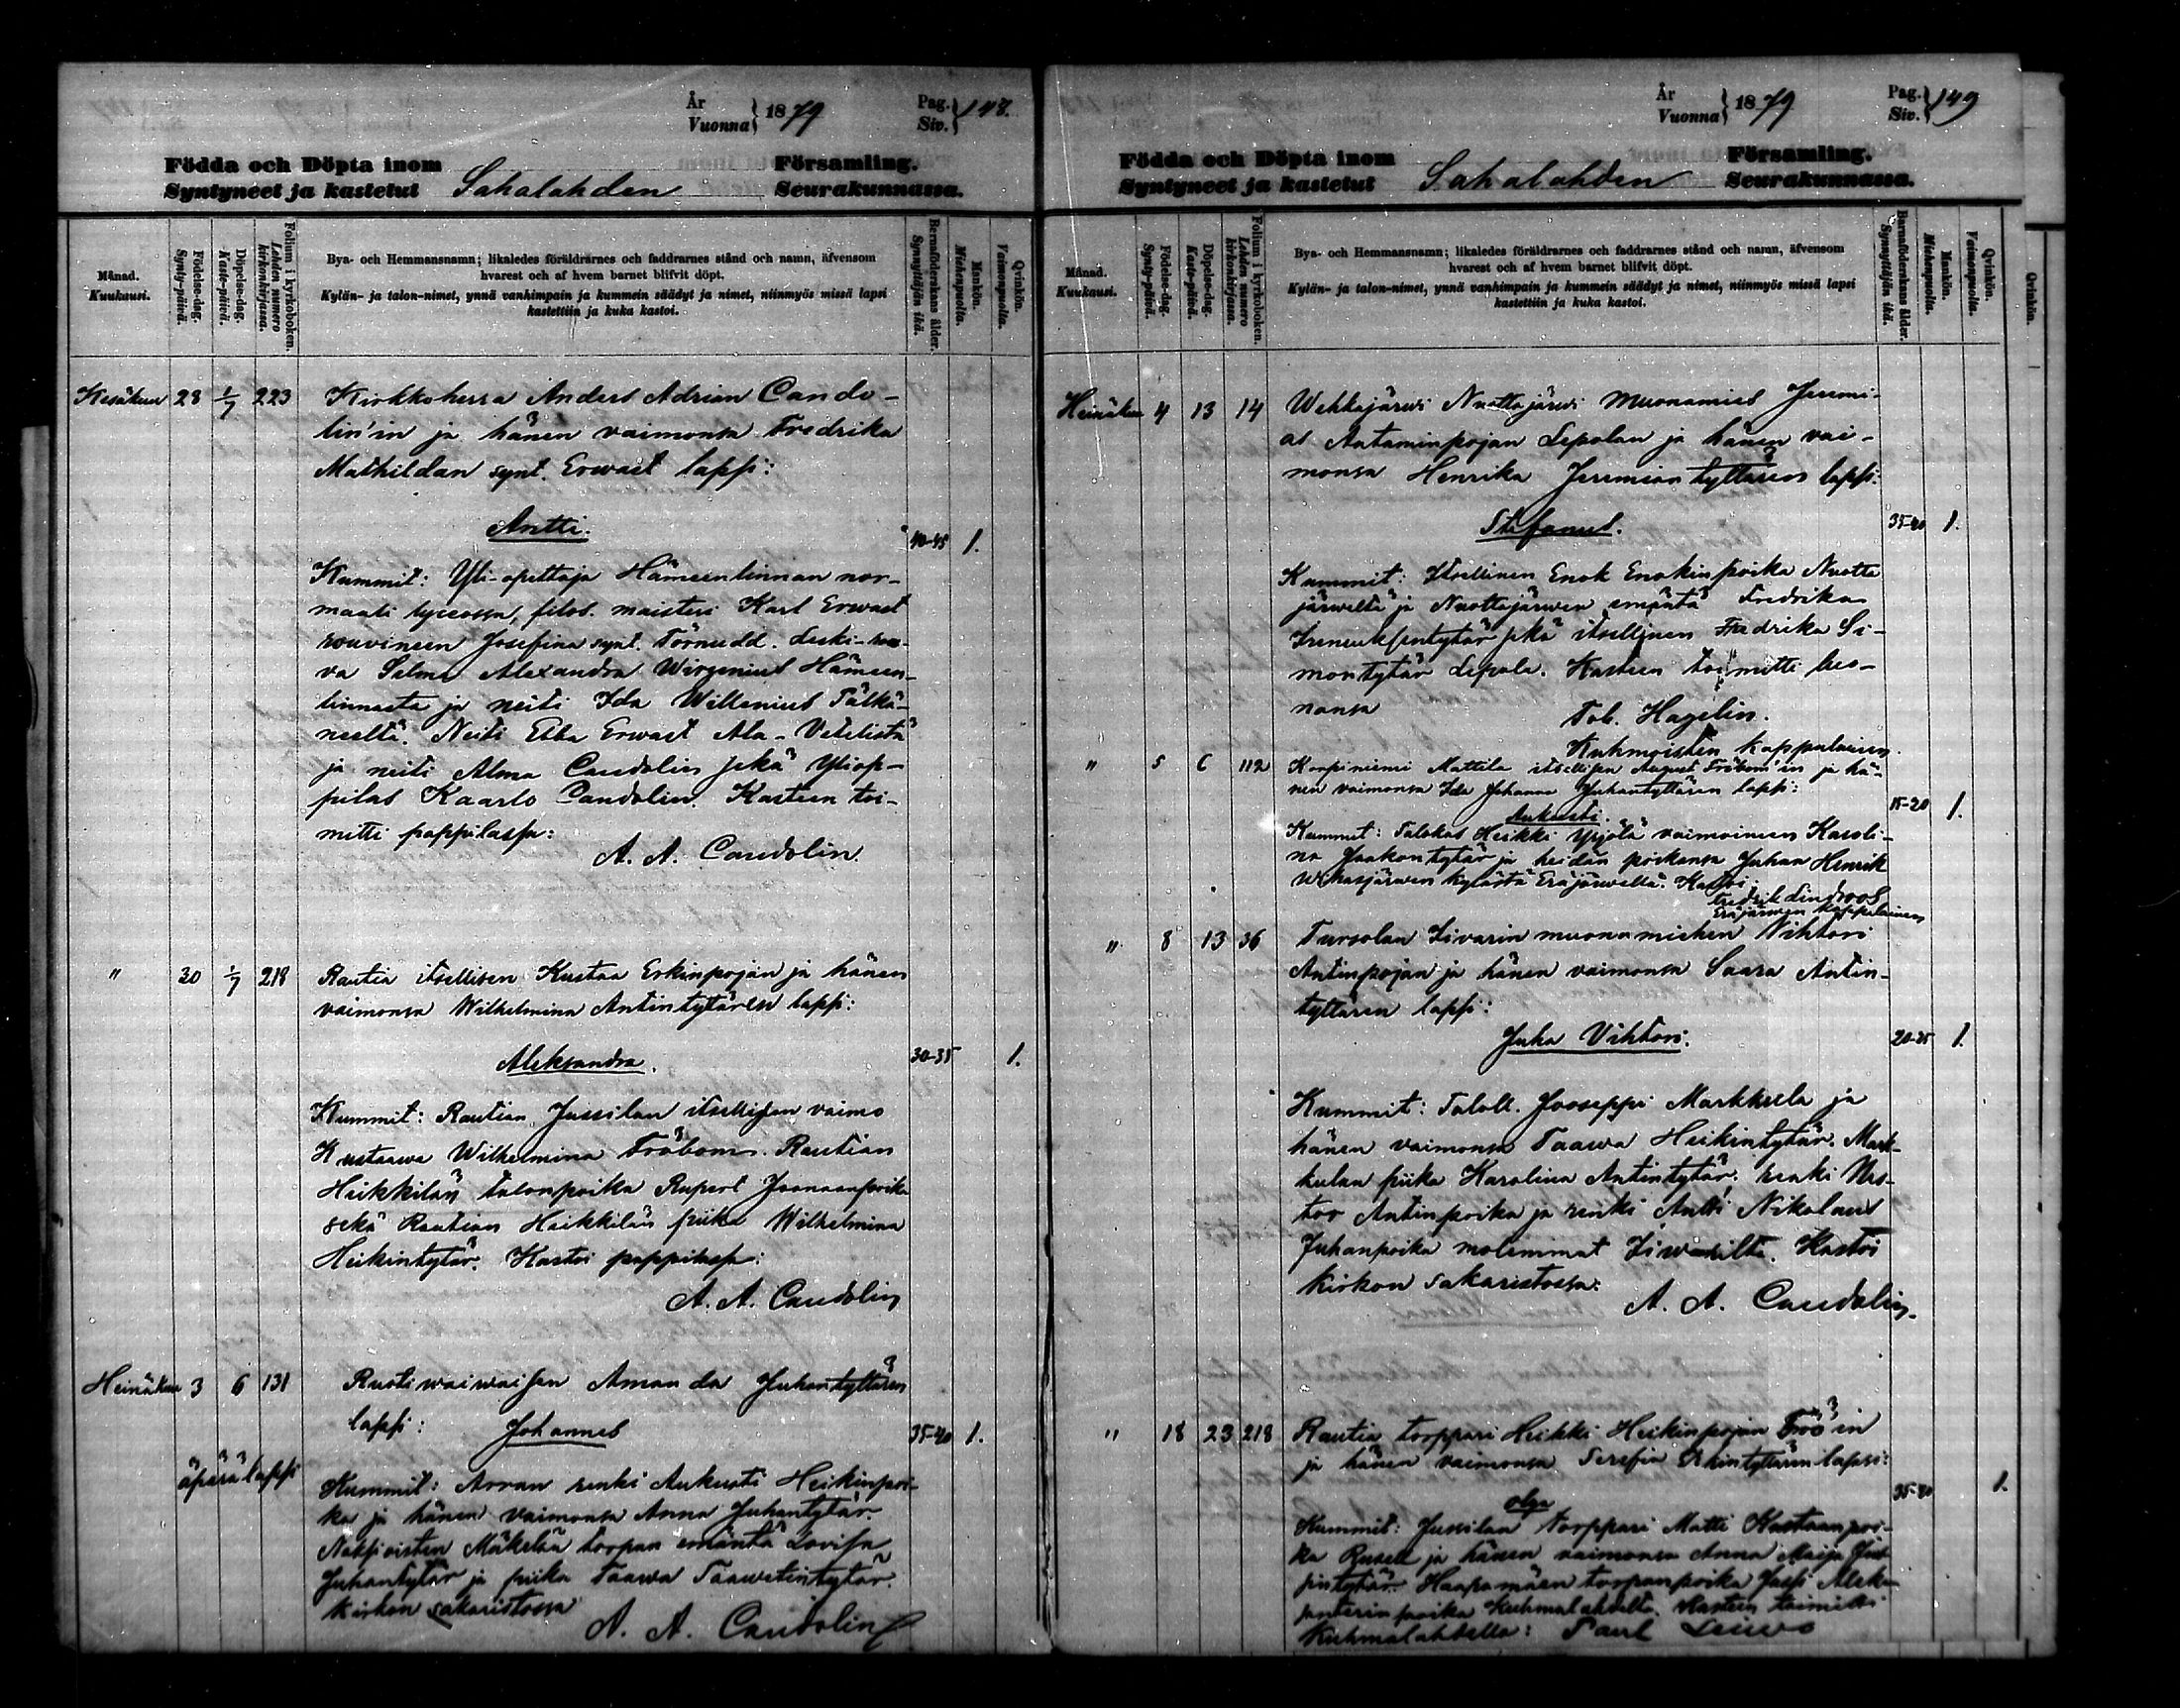 År
Vuonna } 1879
Pag.
Siv. } 148.
Födda och Döpta inom Församling.
Syntyneet ja kastetut Sahalahden Seurakunnassa.
Månad.
Kuukausi.
Födelse-dag.
Synty-päivä.
Döpelse-dag.
Kaste-päivä.
Folium i kyrkoboken.
Lehden numero kirkonkirjassa.
Bya- och Hemmansnamn; likaledes föräldrarnes och faddrarnes stånd och namn, äfvensom
hvarest och af hvem barnet blifvit döpt.
Kylän- ja talon-nimet, ynnä vanhimpain ja kummein säädyt ja nimet, niinmyös missä lapsi
kastettiin ja kuka kastoi.
Barnaföderskans ålder.
Synnyttäjän ikä.
Mankön.
Miehenpuolta.
Qvinkön.
Vaimonpuolta.
Kesäkuu 28 1/7 223 Kirkkoherra Anders Adrian Cando-
lin'in ja hänen vaimonsa Fredrika
Mathildan synt. Erwast lapsi:
Antti. 40-45 1.
Kummit: Yli-opettaja Hämeenlinnan nor-
maali lyceossa, filos. maisteri Karl Erwast
rouvineen Josefina synt. Törnudd. Leski-rou-
va Selma Alexandra Wirzenius Hämeen-
linnasta ja neiti Ida Willenius Pälkä-
neeltä. Neiti Ebba Erwast Ala-Vetelistä
ja neiti Alma Candolin sekä Yliop-
pilas Kaarlo Candolin. Kasteen toi-
mitti pappilassa:
A. A. Candolin.
" 30 1/7 218 Rautia itsellisen Kustaa Erkinpojan ja hänen
vaimonsa Wilhelmina Antintytären lapsi:
Aleksandra. 30-35 1.
Kummit: Rautian Jussilan itsellisen vaimo
Kustaawa Wilhelmina Fröbom. Rautian
Heikkilän talonpoika Rupert Joonaanpoika
sekä Rautian Heikkilän piika Wilhelmina
Heikintytär. Kastoi pappilassa:
A. A. Candolin
Heinäkuu 3 6 131 Ruotiwaiwaisen Amanda Juhantyttären
lapsi: Johannes 35-40 1.
äpärälapsi
Kummit: Arvan renki Aukusti Heikinpoi-
ka ja hänen vaimonsa Anna Juhantytär.
Mäkelän torpan emäntä Lovisa
Juhantytär ja piika Taawa Taawetintytär.
Kirkon sakaristossa
A. A. Candolin
År
Vuonna } 1879
Pag.
Siv. } 149
Födda och Döpta inom Församling.
Syntyneet ja kastetut Sahalahden Seurakunnassa.
Månad.
Kuukausi.
Födelse-dag.
Synty-päivä.
Döpelse-dag.
Kaste-päivä.
Folium i kyrkoboken.
Lehden numero kirkonkirjassa.
Bya- och Hemmansnamn; likaledes föräldrarnes och faddrarnes stånd och namn, äfvensom
hvarest och af hvem barnet blifvit döpt.
Kylän- ja talon-nimet, ynnä vanhimpain ja kummein säädyt ja nimet, niinmyös missä lapsi
kastettiin ja kuka kastoi.
Barnaföderskans ålder.
Synnyttäjän ikä.
Mankön.
Miehenpuolta.
Qvinkön.
Vaimonpuolta.
Qvinkön.
Heinäkuu 4 13 14 Wehkajärwi Nuottajärwi muonamies Jeremi-
as Aataminpojan Lepolan ja hänen vai-
monsa Henrika Jeremiantyttären lapsi:
Stefanus. 35-40 1.
Kummit: Itsellinen Enok Enokinpoika Nuotta
järweltä ja Nuottajärwen emäntä Fredrika
sekä itsellinen Fredrika Si-
montytär Lepola. Kasteen toimitti huo-
nonsa Tob. Hagelin.
Kuhmoisten kappalainen.
" 5 6 112 Korpiniemi Mattila itsellisen August Fröbom'in ja hä-
nen vaimonsa Ida Johanna Juhantyttären lapsi:
Aukusti. 15-20 1.
Kummit: Talokas Heikki Yrjölä vaimoineen Karoli-
na Jaakontytär ja heidän poikansa Juhan Henrik
kylästä Eräjärveltä. Kastoi:
Fredrik Lindroos
Eräjärwen kappalainen
" 8 13 36 Tursolan Iivarin muonamiehen Vihtori
Antinpojan ja hänen vaimonsa Saara Antin-
tyttären lapsi:
Juha Vihtori. 20-25 1.
Kummit: Taloll. Jooseppi Markkula ja
hänen vaimonsa Taawa Heikintytär. Mark-
kulan piika Karolina Antintytär. renki Nes-
tor Antinpoika ja renki Antti Nikolaus
Juhanpoika molemmat Iiwarilta. Kastoi
kirkon sakaristossa:
A. A. Candolin.
" 18 23 218 Rautia torppari Heikki Heikinpojan Fröö'in
ja hänen vaimonsa Serafia Erkintyttären lapsi:
Olga 35-40 1.
Kummit: Jussilan torppari Matti Kustaanpoi-
ka Rusell ja hänen vaimonsa Anna Maija Jus-
sintytär. Haapamäen torpanpoika Jussi Alek-
santerinpoika Kuhmalahdelta. Kasteen toimitti
Kuhmalahdella: Paul Leiwo